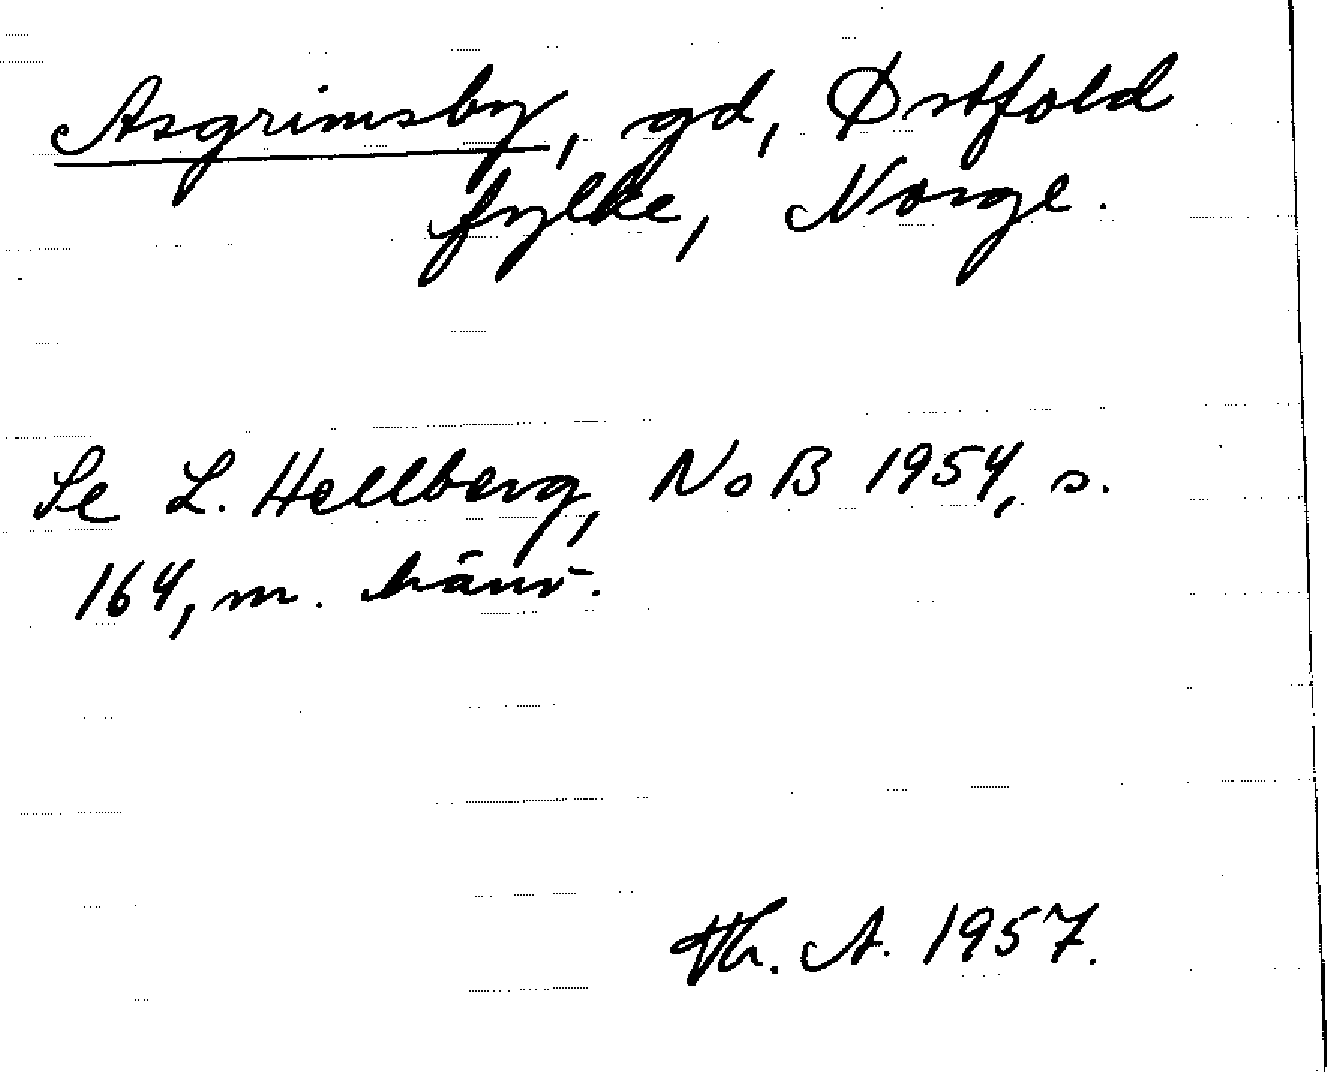 Asgrimsby, gd, Østfold
fylke, Norge.
Se L. Hellberg, NoB 1954, s.
164, m. hänv.
Th. A. 1957.